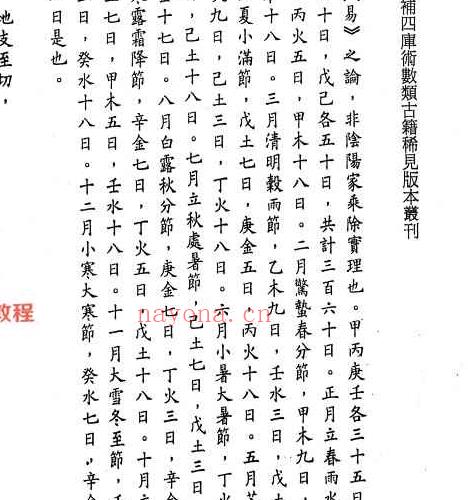 補四庫術數類古籍稀見版本叢刊
易》之論,非陰陽家乘除實理也。甲丙庚壬各三十五日
十日,戊己各五十日,共計三百六十日。正月立春雨水
丙火五日,甲木十八日。二月驚蟄春分節,甲木九日,
十八日。三月清明穀雨節,乙木九日,壬水三日,戊土
夏小滿節,戊土七日,庚金五日,丙火十八日。五月芒
九日,己土三日,丁火十八日。六月小暑大暑節,丁火
,己土十八日。七月立秋處暑節,己土七日,戊土三日
金十七日。八月白露秋分節,庚金七日,丁火三日,辛金
寒露霜降節,辛金七日,丁火五日,戊土十八日。十月
七日,甲木五日,壬水十八日。十一月大雪冬至節,壬
日,癸水十八日。十二月小寒大寒節,癸水七日,辛金
日是也。
地支至切,
nayona.cn
教程